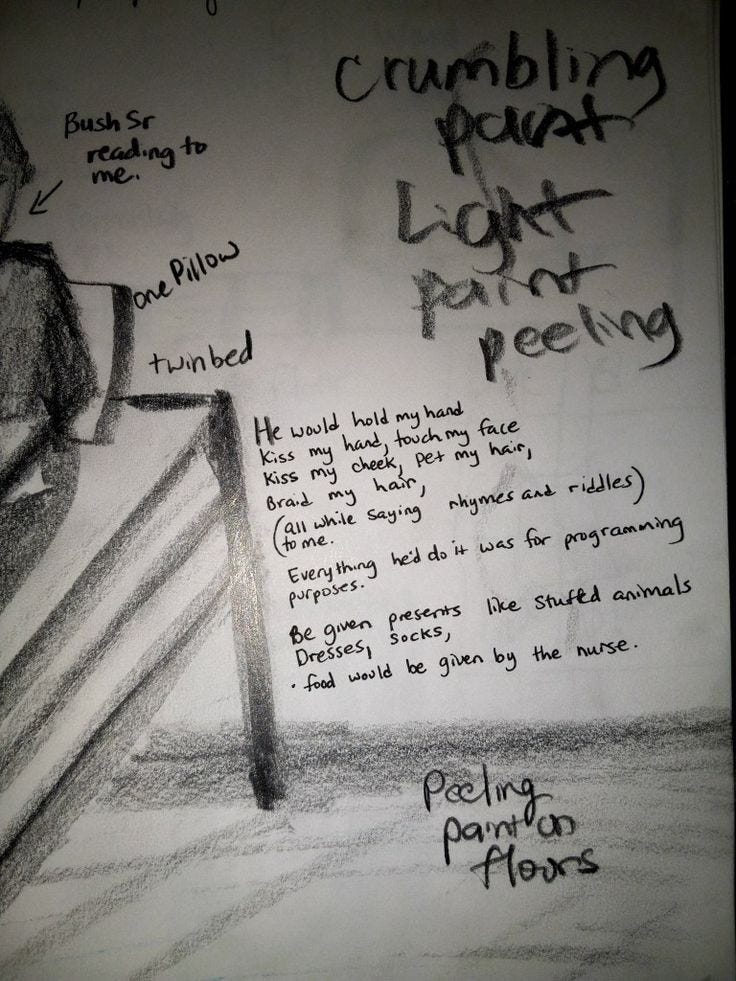 crumbling
paint
Light
paint
peeling
Bush Sr
reading to
me.
one Pillow
twin bed
He would hold my hand
Kiss my hand, touch my face
Kiss my cheek, pet my hair,
Braid my hair,
(all while saying rhymes and riddles)
to me.
Everything he'd do it was for programming
purposes.
Be given presents like stuffed animals
Dresses, socks,
• food would be given by the nurse.
Peeling
paint on
floors